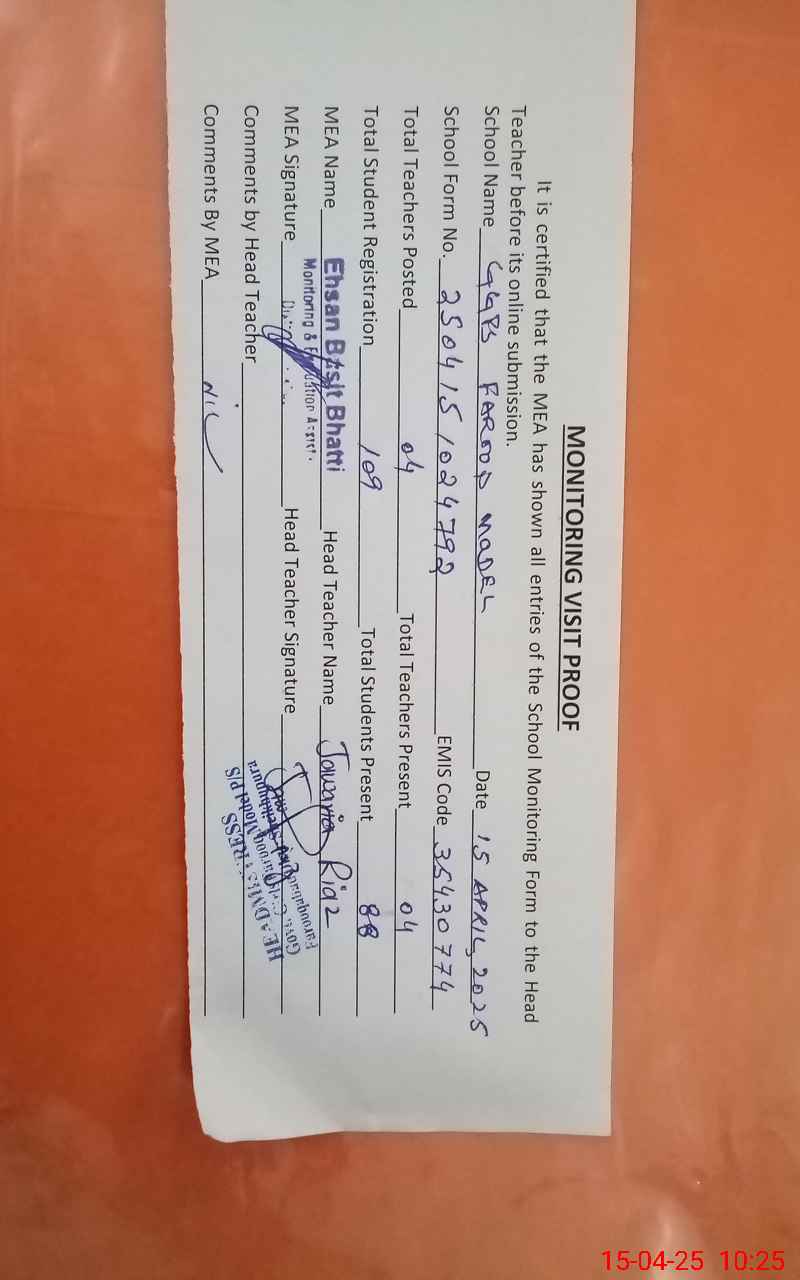 MONITORING VISIT PROOF
It is certified that the MEA has shown all entries of the School Monitoring Form to the Head
Teacher before its online submission.
School Name GGPS FAROOQ MODEL Date 15 APRIL, 2025
School Form No. 2504151024792 EMIS Code 35430774
Total Teachers Posted 04 Total Teachers Present 04
Total Student Registration 109 Total Students Present 88
MEA Name Ehsan Basit Bhatti Head Teacher Name Jawaria Riaz
Monitoring &
MEA Signature Head Teacher Signature
Comments by Head Teacher
Comments By MEA NIL
HEADMISTRESS
Govt. Farooq Model P/S
Farooqabad
15-04-25 10:25